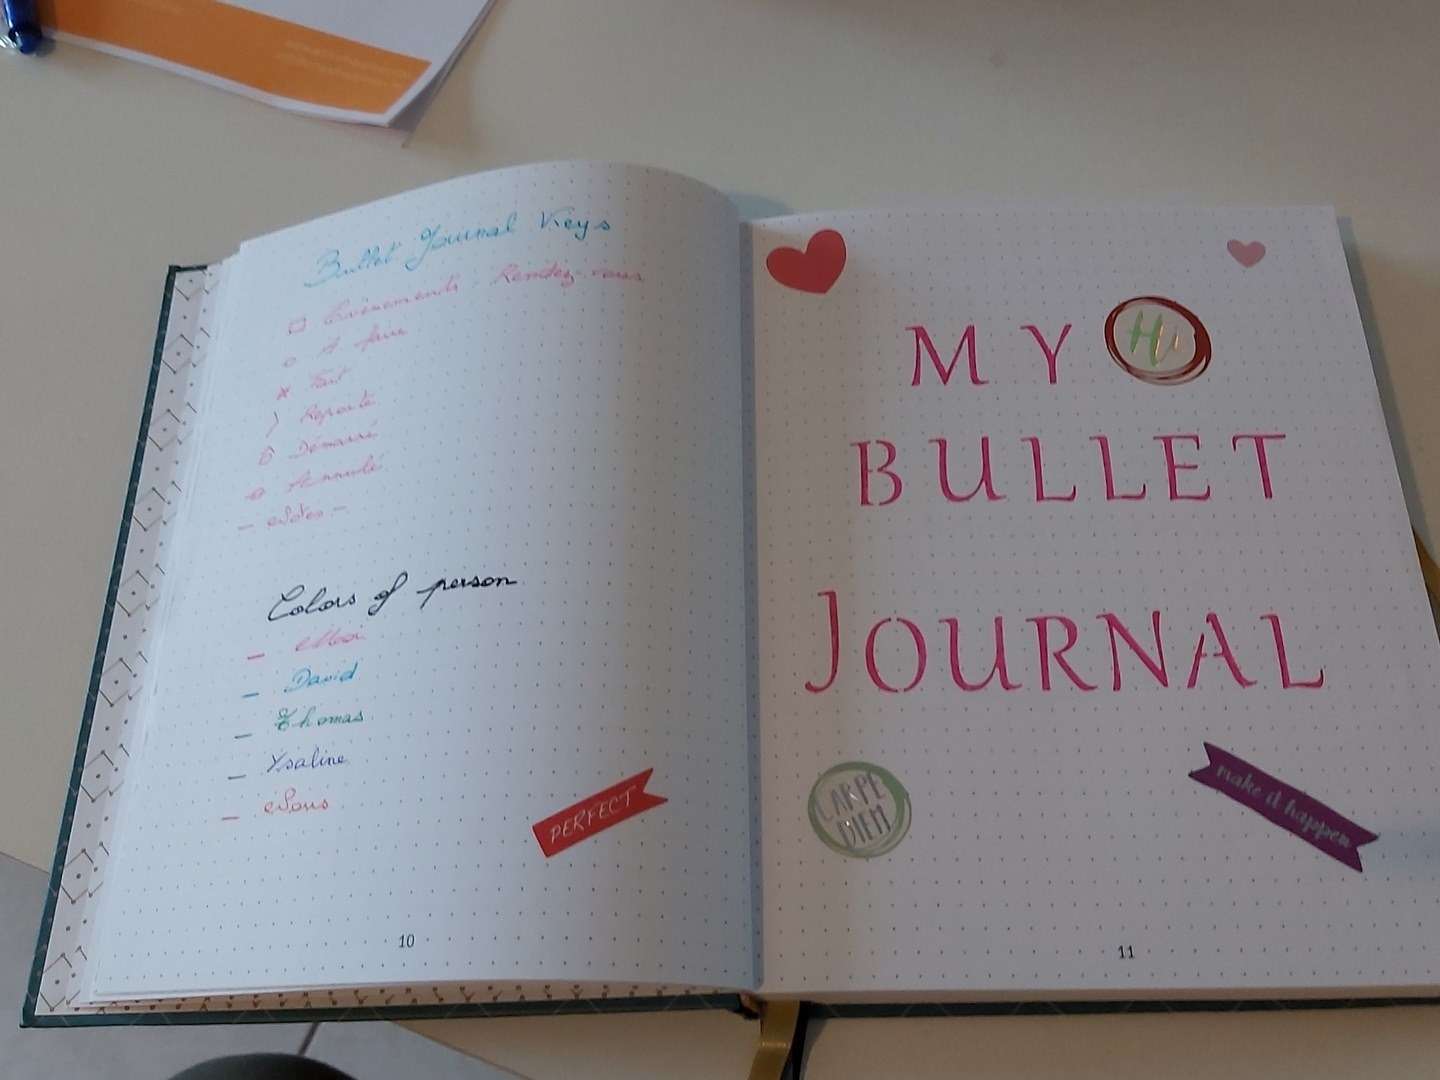 Bullet Journal Keys
□ Evènements - Rendez-vous
o A faire
x Fait
) Reporté
Démarré
Annulé
- Notes -
Colors of person
- Moi
- David
- Thomas
- Ysaline
- Nous
PERFECT
10
MY
Hi
BULLET
JOURNAL
CARPE
DIEM
make it happen
11